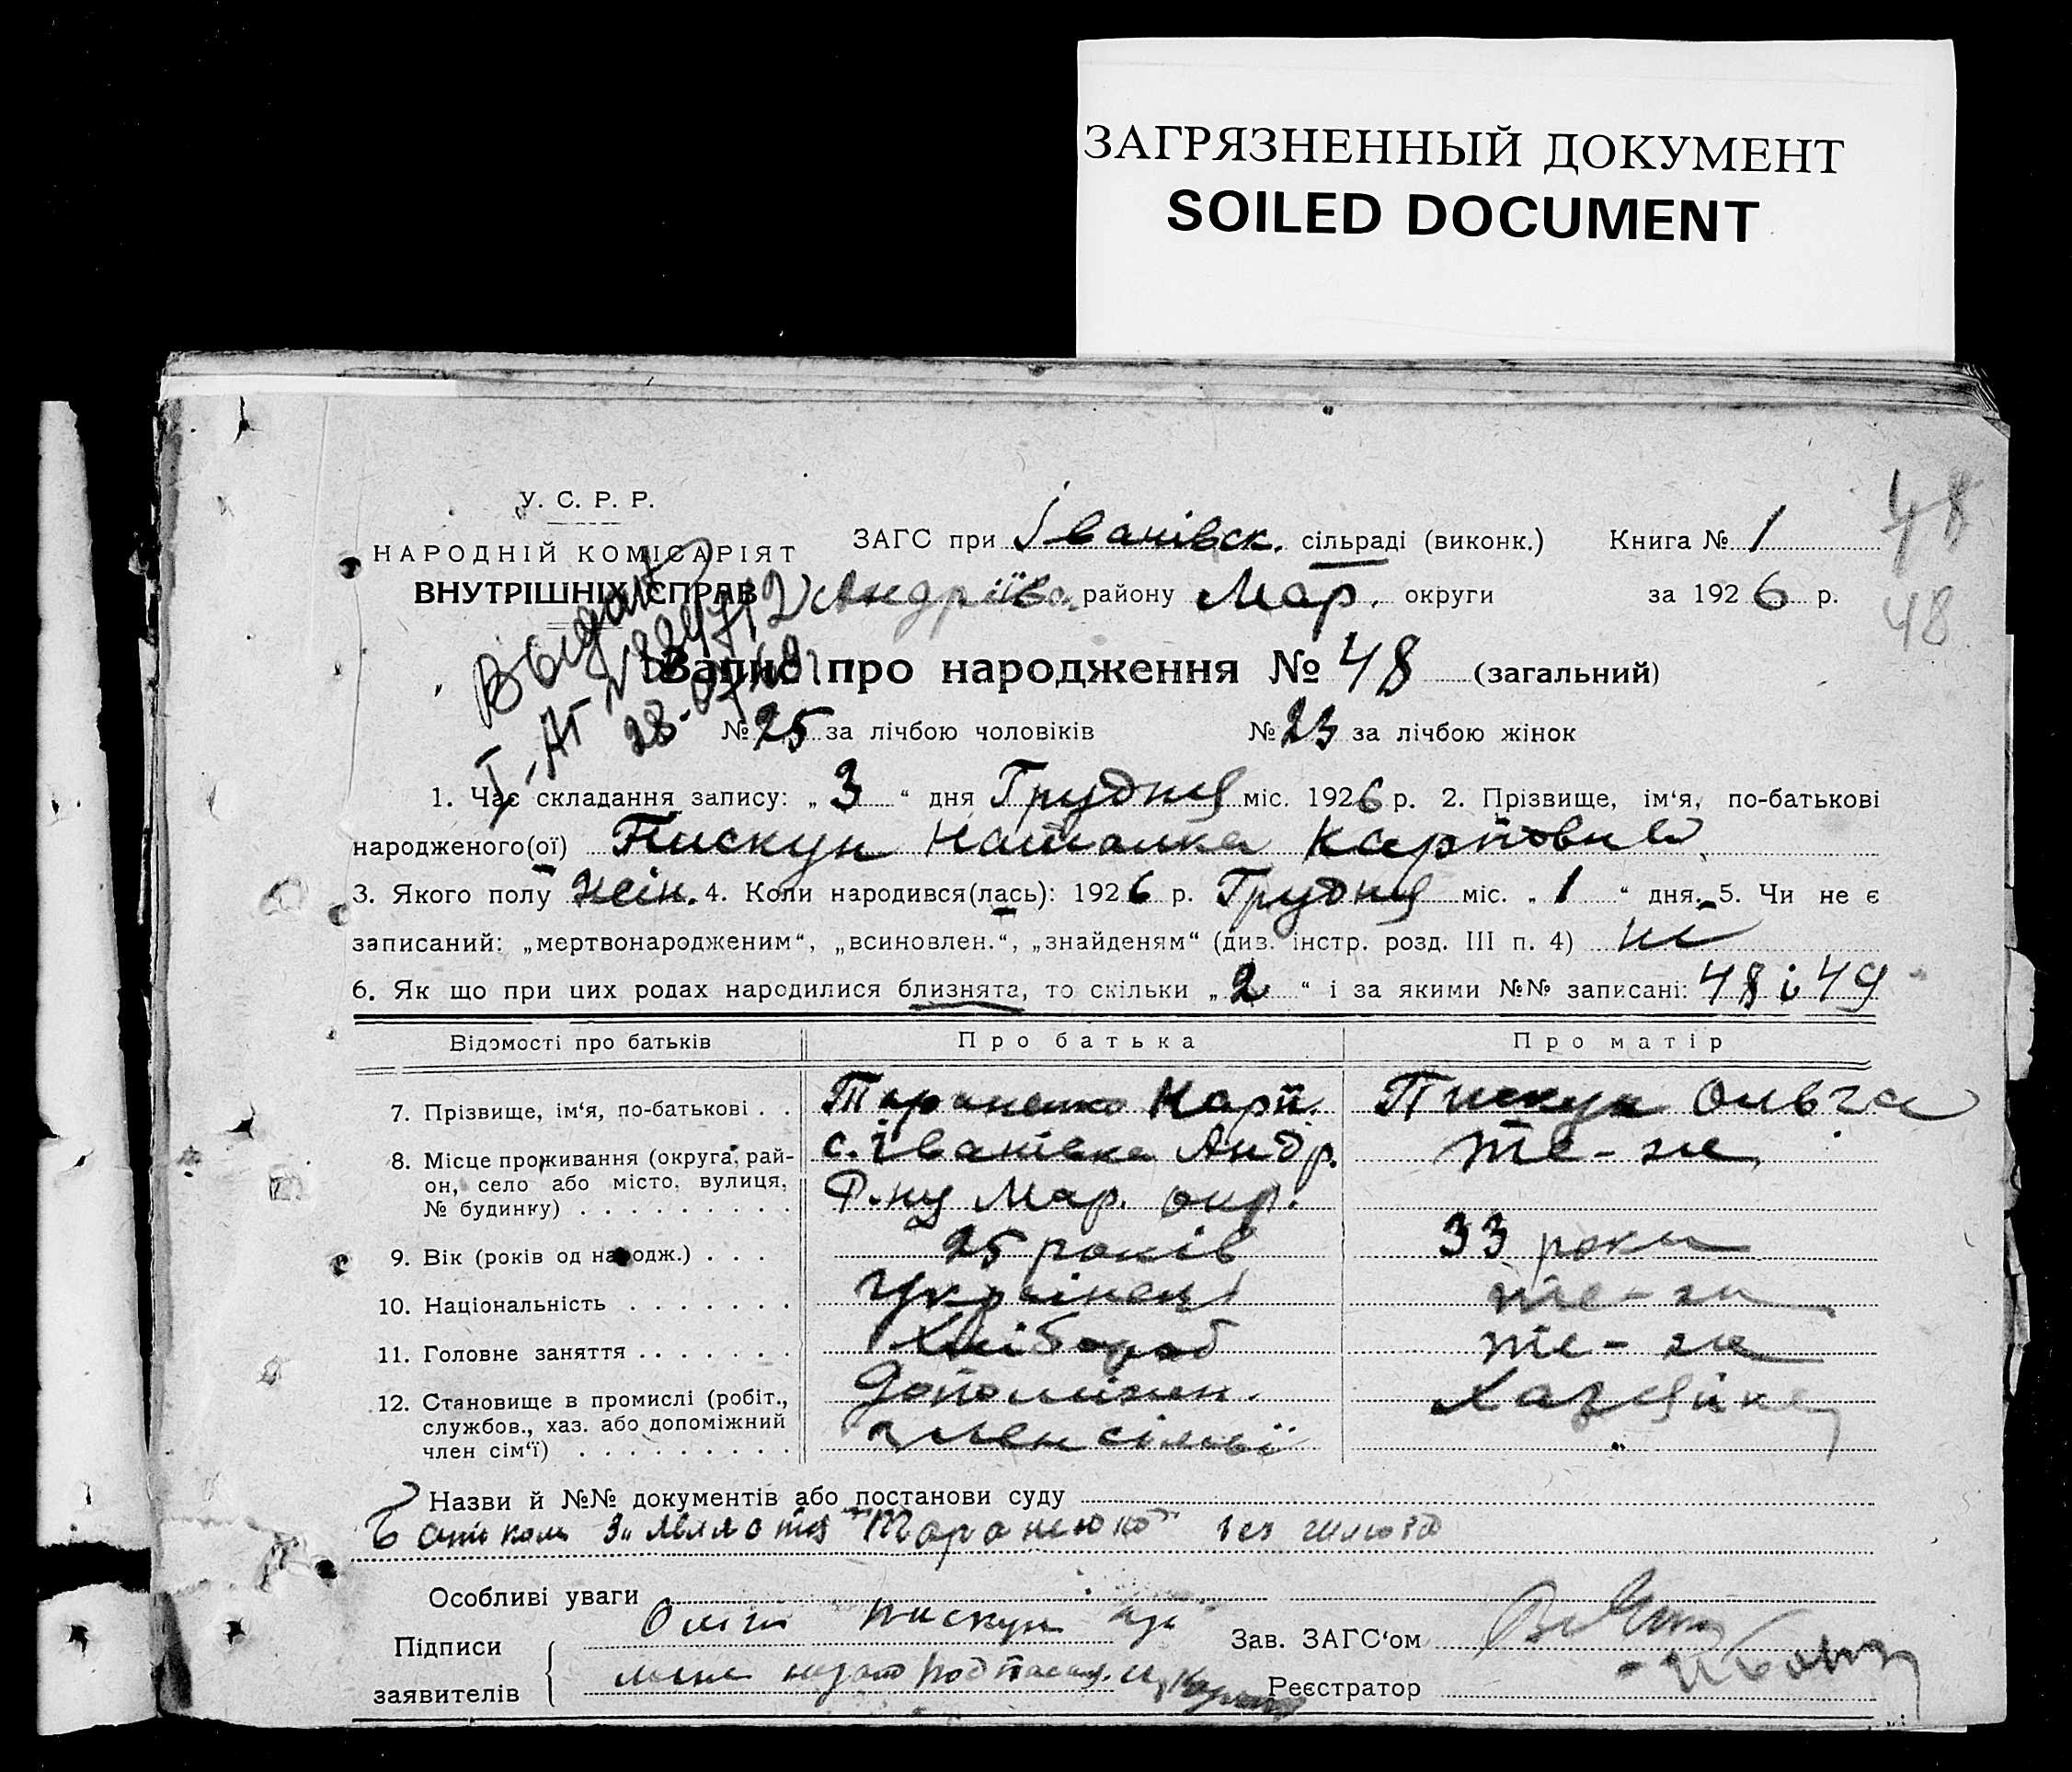 ЗАГРЯЗНЕННЫЙ ДОКУМЕНТ
SOILED DOCUMENT
48
48
У. С. Р. Р.
НАРОДНІЙ КОМІСАРІЯТ
ВНУТРІШНІХ СПРАВ
ЗАГС при Іванівск. сільраді (виконк.) Книга № 1
Андріївс. району Мар. округи за 1926 р.
Выдано
28-07
Запис про народження № 48 (загальний)
№ 25 за лічбою чоловіків № 23 за лічбою жінок
1. Час складання запису: „ 3 “ дня Грудня міс. 1926 р. 2. Прізвище, ім‘я, по-батькові
народженого(ої) Пискун Наталка Карповна
3. Якого полу жін. 4. Коли народився(лась): 1926 р. Грудня міс. „ 1 “ дня. 5. Чи не є
записаний: „мертвонародженим“, „всиновлен.“, „знайденям“ (див. інстр. розд. III п. 4) ні
6. Як що при цих родах народилися близнята, то скільки „ 2 “ і за якими №№ записані: 48 і 49
Відомості про батьків Про батька Про матір
7. Прізвище, ім‘я, по-батькові . . Тараненко Карп. Пискун Ольга
8. Місце проживання (округа, рай- с. Іванівка Андр. те-же
он, село або місто, вулиця, Р-ну Мар. окр.
№ будинку) . . . . . . . . .
9. Вік (років од народж.) . . . 25 років 33 роки
10. Національність . . . . . . . Українец те-же
11. Головне заняття . . . . . . . Хлібороб те-же
12. Становище в промислі (робіт., Допоміжн. Хазяйка
службов., хаз. або допоміжний член сімьї "
член сім‘ї) . . . . . . . . .
Назви й №№ документів або постанови суду
Батьком з'является Тараненко без шлюба
Особливі уваги
Підписи Ольга Пискун Зав. ЗАГС‘ом
заявителів Реєстратор